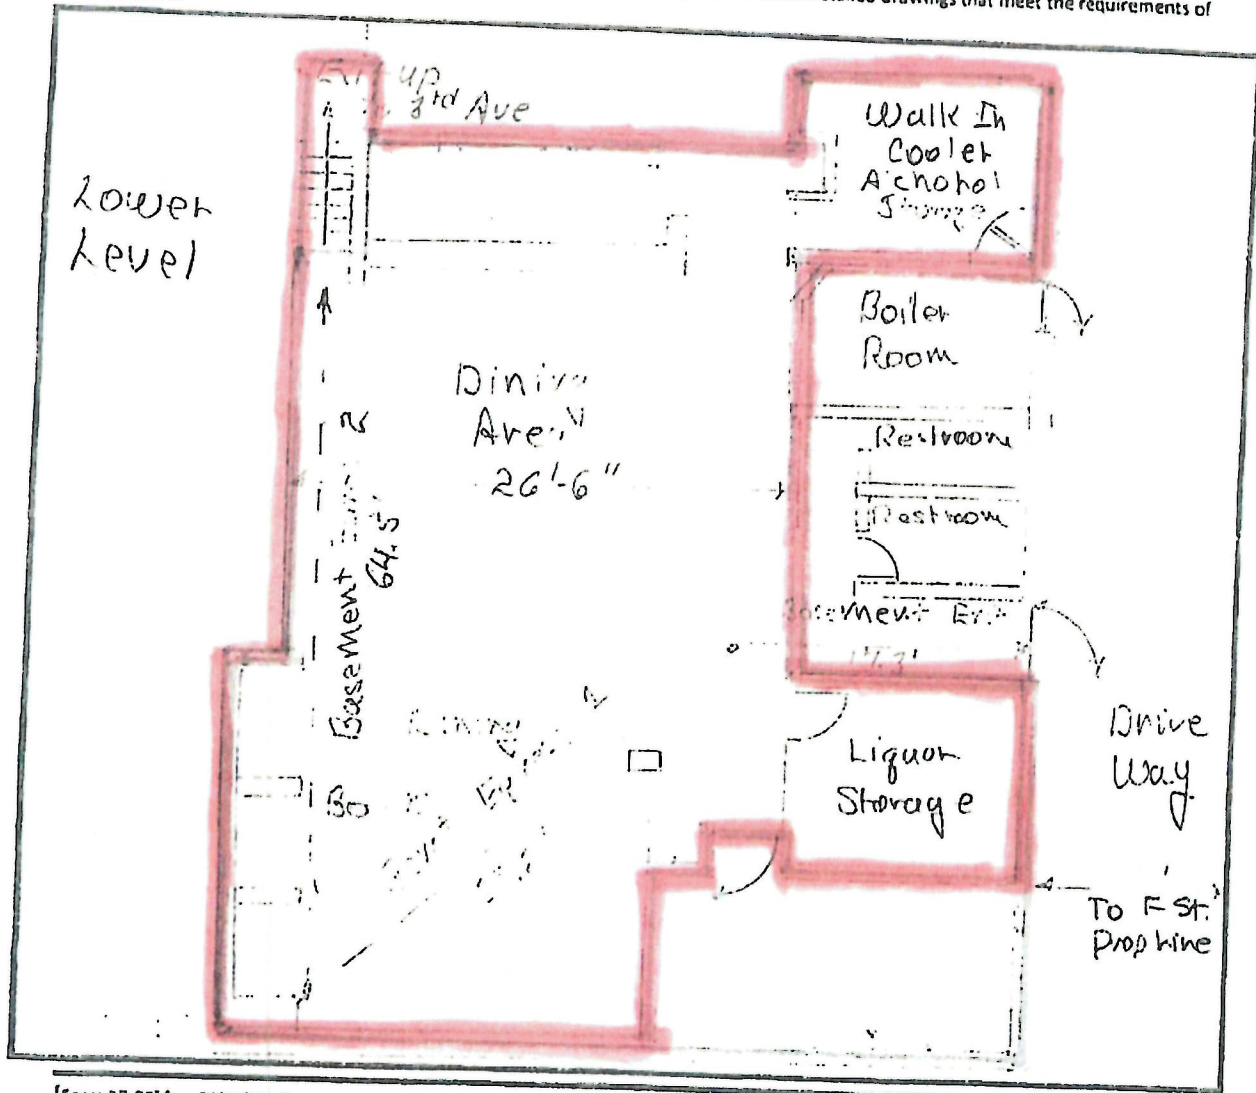 drawings that meet the requirements of
up
3rd Ave
Walk In
Cooler
Alchohol
Lower
Level
Boiler
Room
Dining
Area
26'-6"
Restroom
Restroom
Basement
64.5'
Basement
Dining
Liquor
Storage
Drive
Way
To F St.
Prop Line